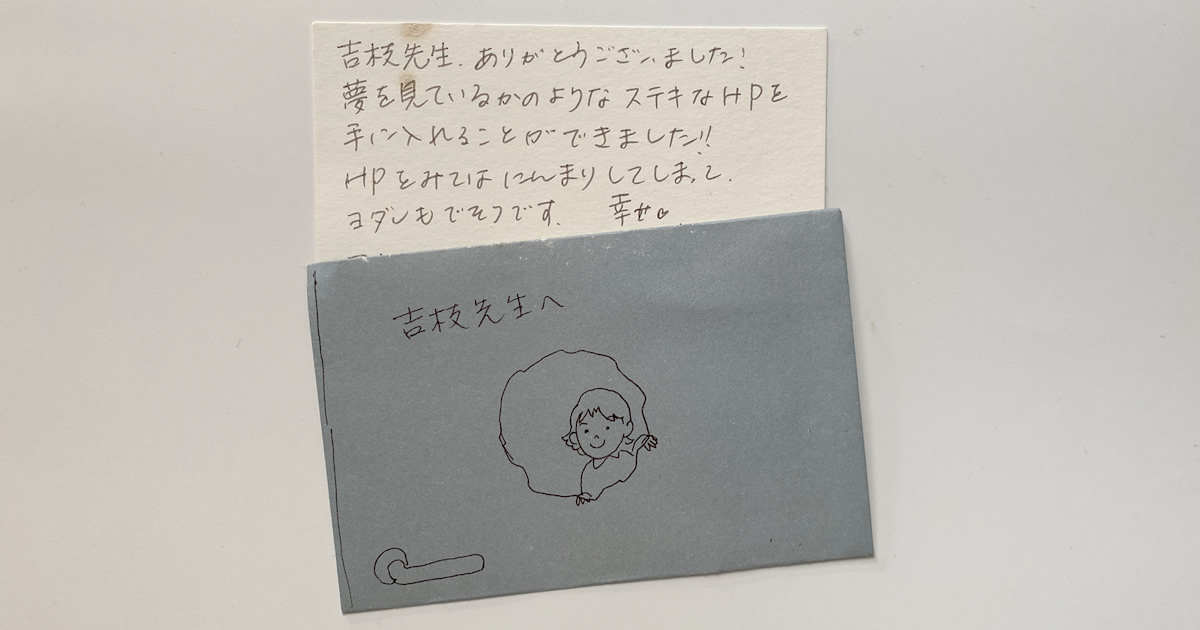 吉枝先生、ありがとうございました!
夢を見ているかのようなステキなHPを
手に入れることができました!!
HPをみてはにんまりしてしまって、
ヨダレもでそうです。 幸せ♡
吉枝先生へ